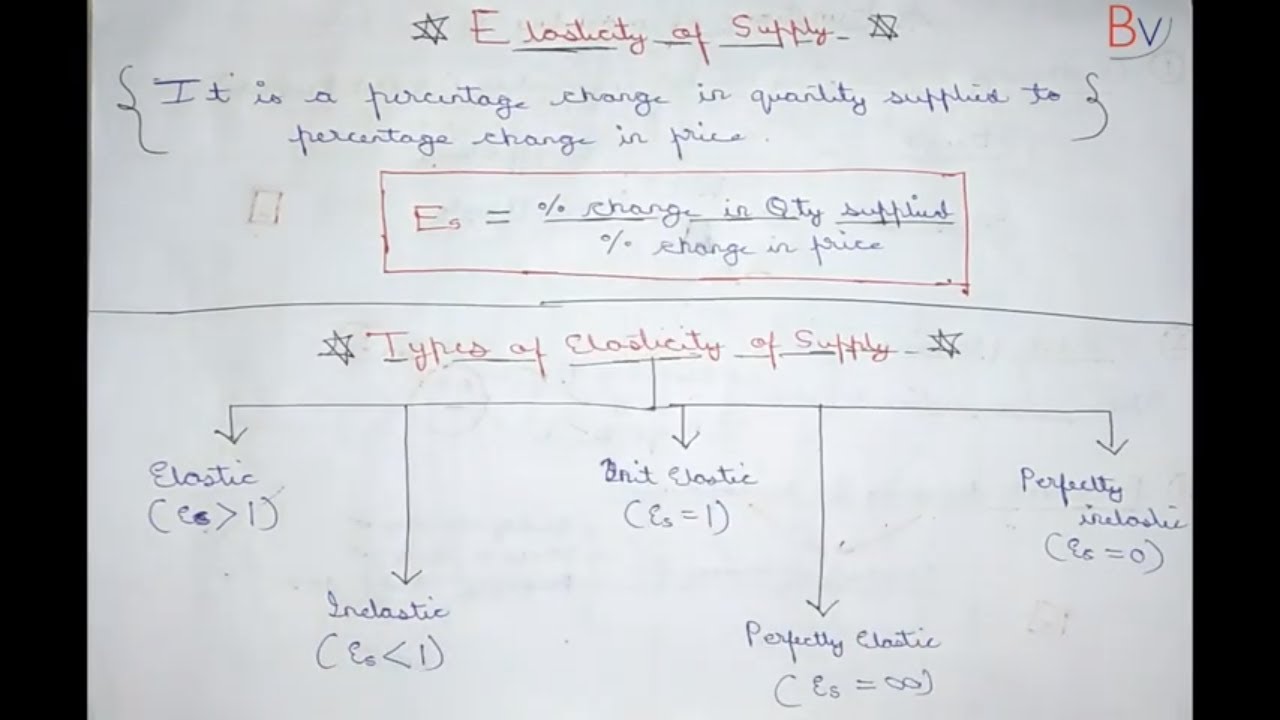 Elasticity of Supply
BV
{ It is a percentage change in quantity supplied to }
percentage change in price.
Es = % change in Qty supplied
% change in price
Types of Elasticity of Supply
Elastic
(Es > 1)
Inelastic
(Es < 1)
Unit Elastic
(Es = 1)
Perfectly Elastic
(Es = ∞)
Perfectly
inelastic
(Es = 0)